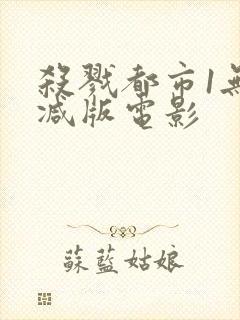 殺戮都市1無
減版電影
蘇藍姑娘